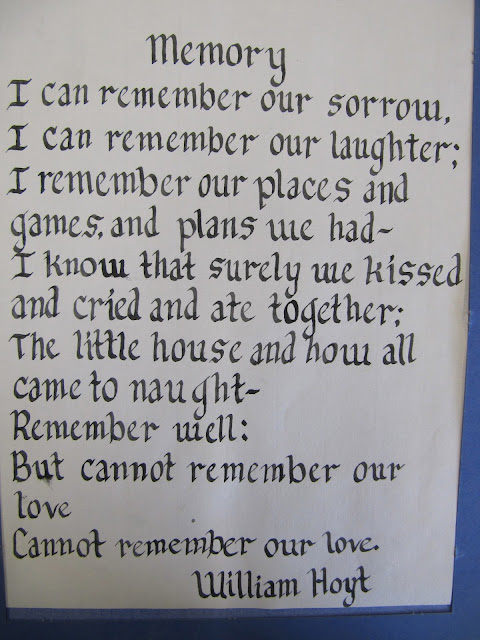 Memory
I can remember our sorrow,
I can remember our laughter;
I remember our places and
games, and plans we had~
I know that surely we kissed
and cried and ate together;
The little house and how all
came to naught~
Remember well:
But cannot remember our
love
Cannot remember our love.
William Hoyt